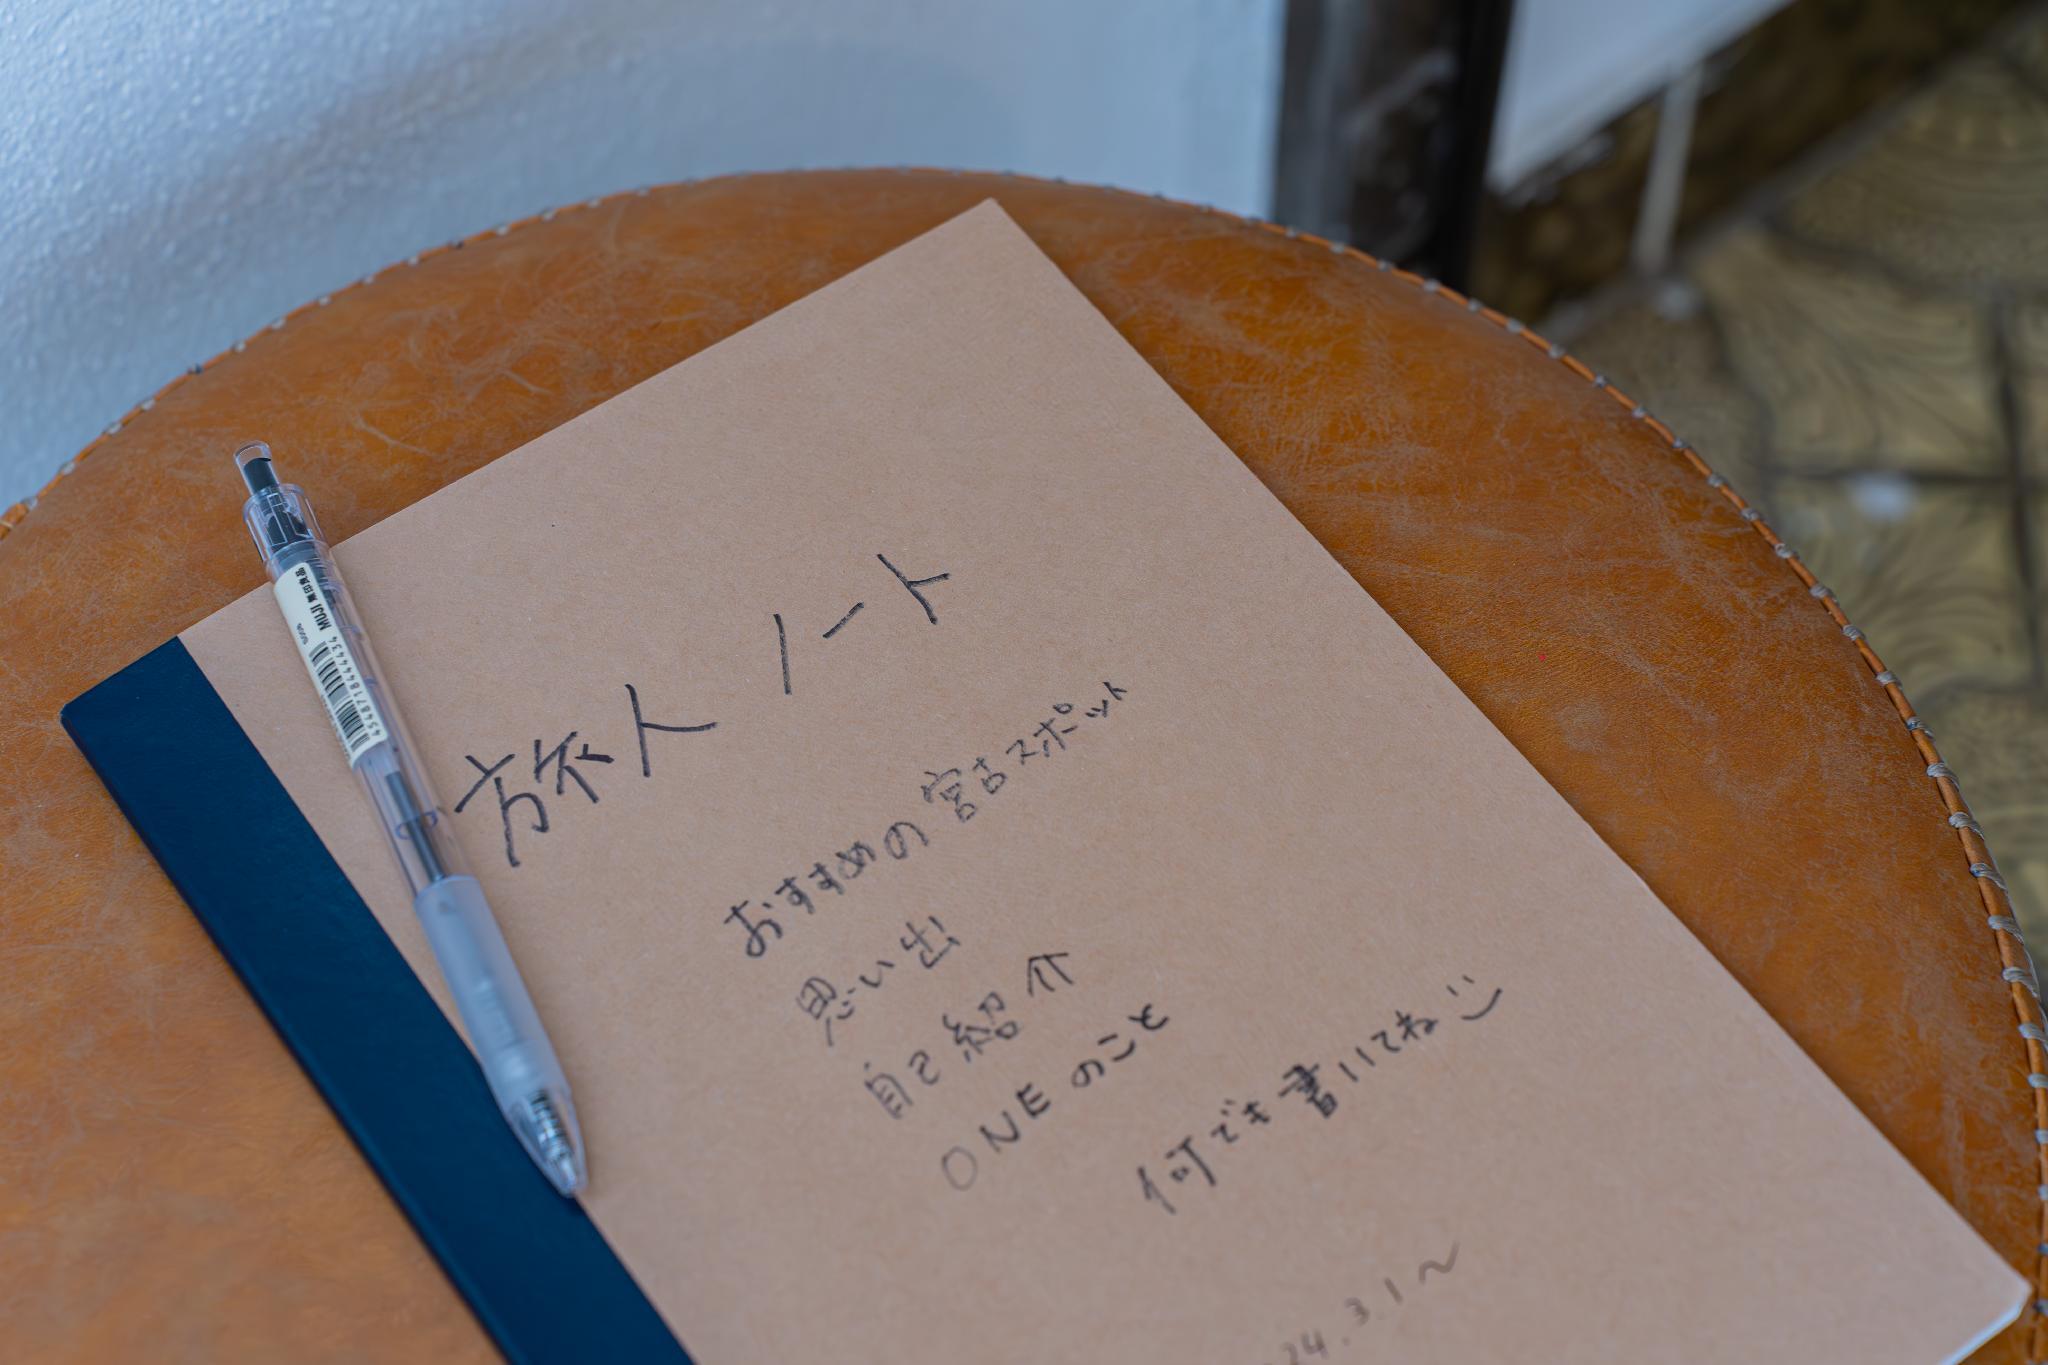 旅人ノート
おすすめの宮古スポット
思い出
自己紹介
ONEのこと
何でも書いてね
24.3.1～
MUJI 無印良品
4548718444434